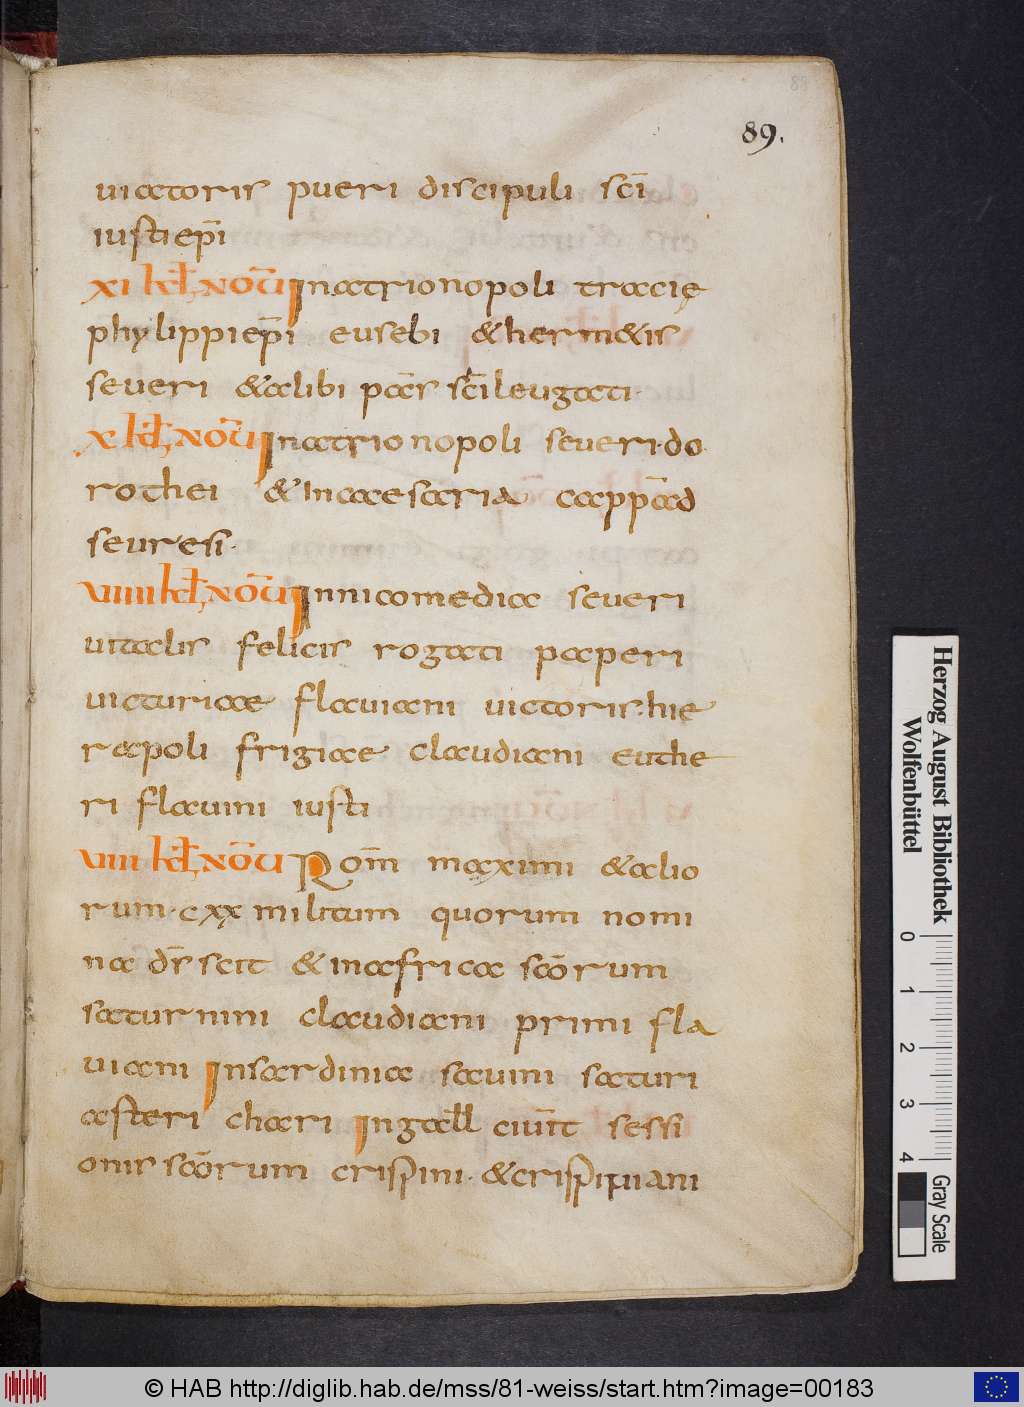 89
89.
uiatoris pueri discipuli sc̅i
iusti ep̅i
xi kl̅ nou̅ In atrionopoli tracię
phylippi ep̅i eusebi & herm&is
seueri & alibi pac̅s sc̅i leugati.
x kl̅d, nou̅ In atrionopoli seueri. do
rothei & In acesaria capp̅ad
seuresi.
uiiii kl̅, nou̅ In nicomedia seueri
uitalis felicis rogati paperi
uicturiae flauiani uictoris. hie
rapoli frigiae claudiani euthe
ri flauini iusti
uiii kl̅, nou̅ Rom̅ maximi & alio
rum. cxx militum quorum nomi
na d̅s scit & in africa sc̅orum
saturnini claudiani primi fla
uiani In sardinia sauini saturi
asteri chari In gall ciuit̅ sessi
onis sc̅orum crispini. & crispiniani
Herzog August Bibliothek
Wolfenbüttel
0 1 2 3 4
Gray Scale
© HAB http://diglib.hab.de/mss/81-weiss/start.htm?image=00183